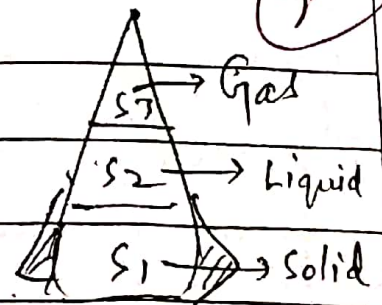 S3 → Gas
S2 → Liquid
S1 → Solid